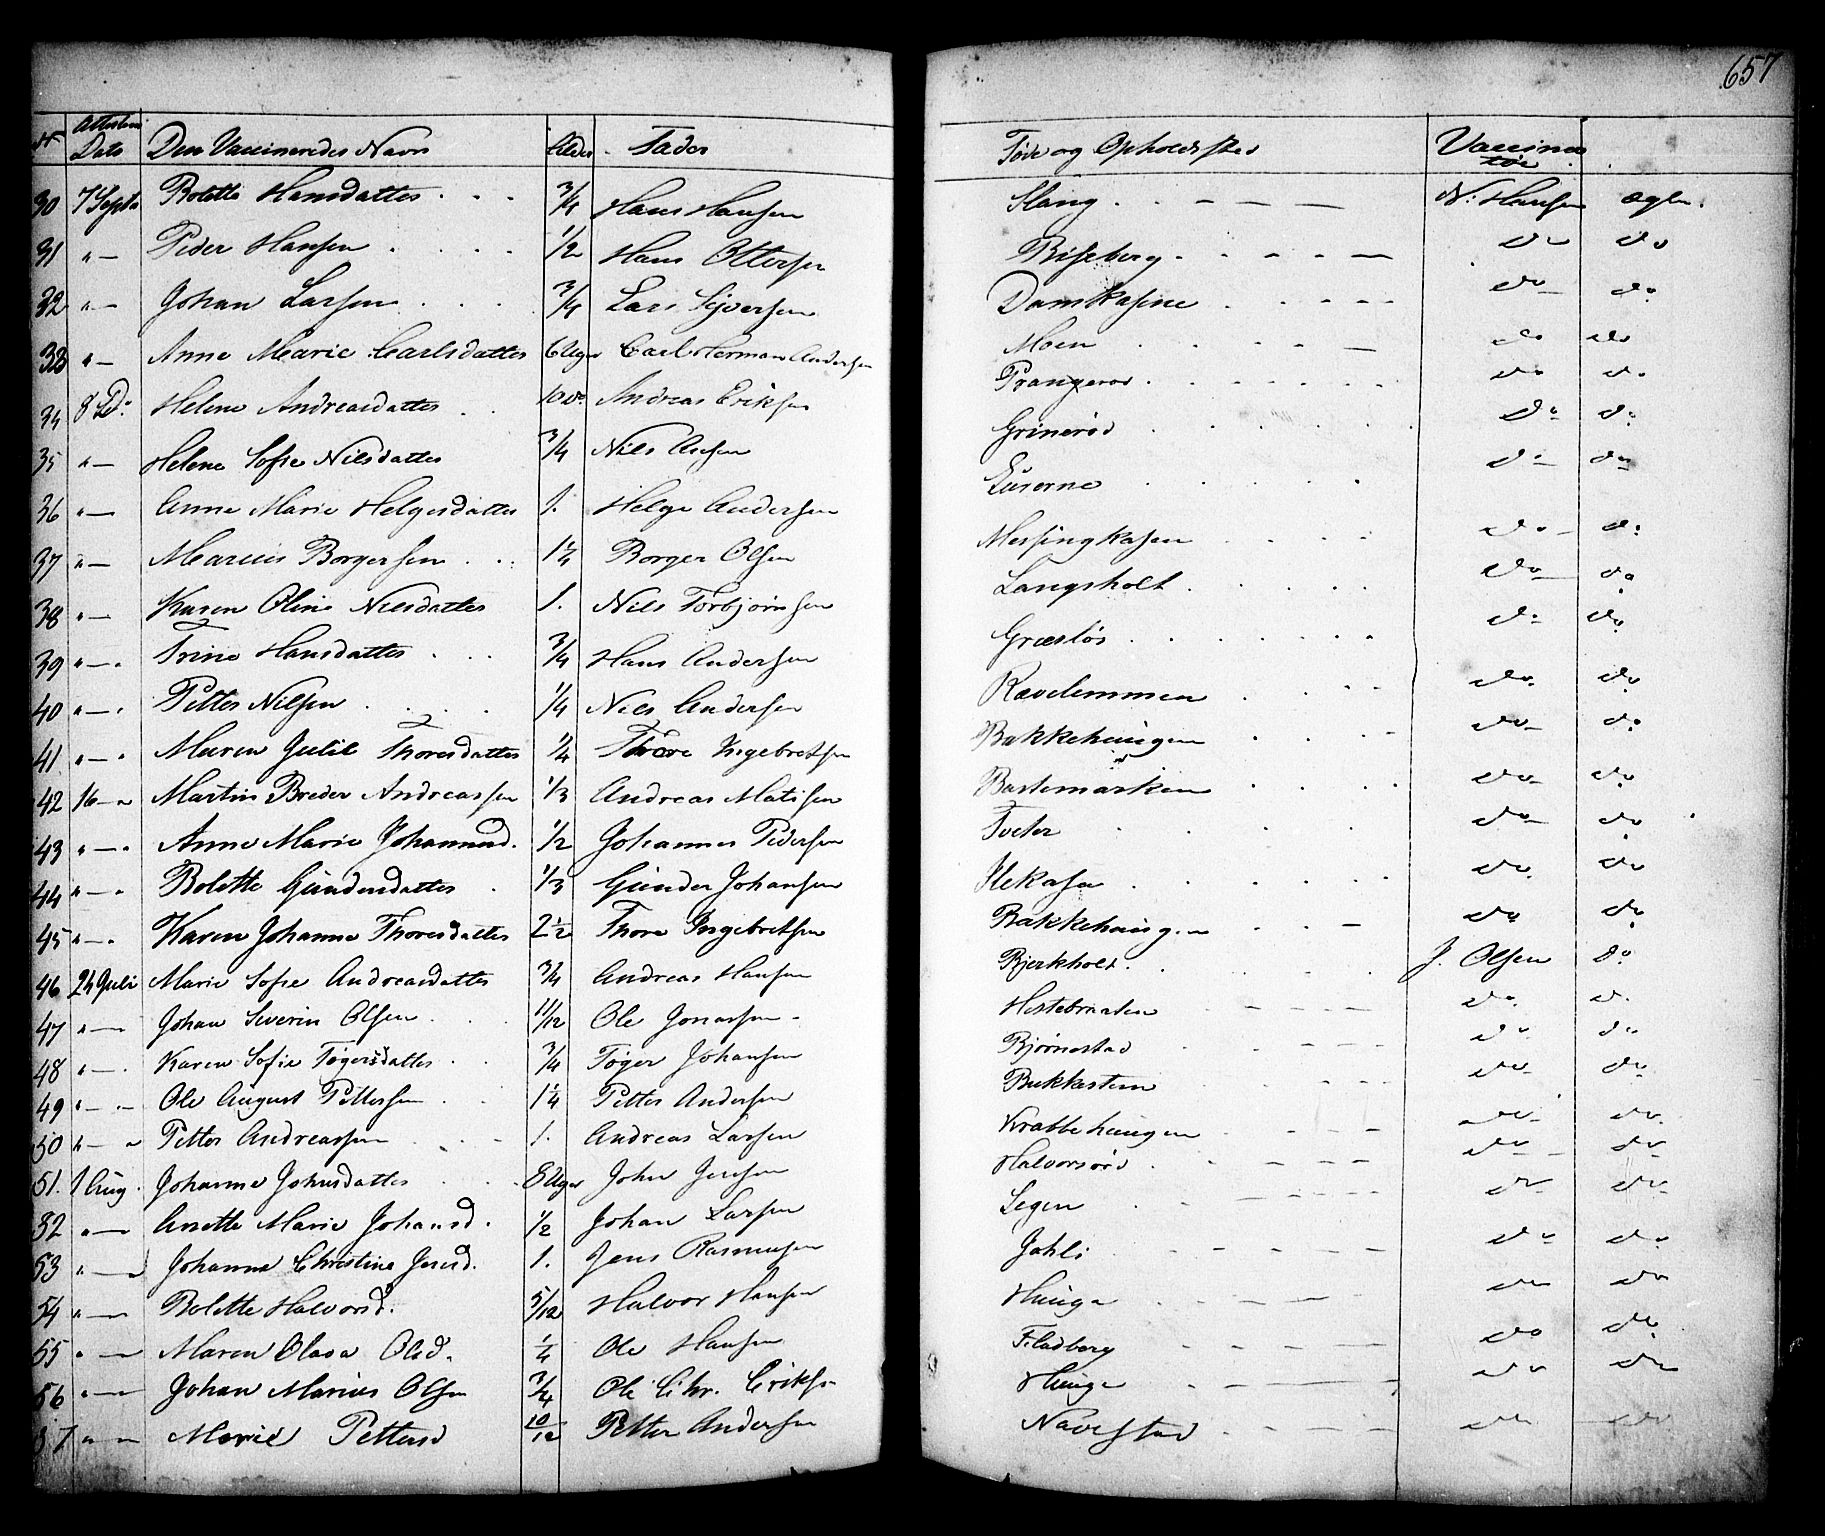 657
N Attestens Dato Den Vaccineredes Navn Alder Fader Føde og Opholdssted Vaccina tør
30 7 Septr Bolette Hansdatter 3/4 Hans Hansen Slang N. Hansen ægte
31 " Peder Hansen 1/2 Hans Ottersen Bisseberg do do
32 " Johan Larsen 3/4 Lars Sjversen Damskasine do do
33 " Anne Marie Carlsdatter 6 Uger Carl Herman Andersen Moen do do
34 8 Do Helene Andreasdatter 10 do Andreas Eriksen Prangerød do do
35 " Helene Sofie Nilsdatter 3/4 Nils Grinerød do do
36 " Anne Marie Helgesdatter 1. Helge Andersen do do
37 " Marius Borgersen 1 1/4 Borger Olsen Messingkasen do do
38 " Karen Oline Nilsdatter 1. Nils Torbjørnsen Langsholt do do
39 " Trine Hansdatter 3/4 Hans Andersen Græsløs do do
40 " Petter Nilsen 1/4 Nils Andersen Ravelemmen do do
41 " Maren Julie Thoresdatter 1/4 Thore Ingebretsen Bakkehaugen do do
42 16 " Martin Breder Andreassen 1/3 Andreas Matisen Bastemarken do do
43 " Anne Marie Johannesd. 1/2 Johannes Pedersen Tveter do do
44 " Bolette Gundersdatter 1/3 Gunder Johansen Ilekasa do do
45 " Karen Johanne Thoresdatter 2 1/2 Thore Ingebretsen Bakkehaugen do do
46 24 Juli Marie Sofie Andreasdatter 3/4 Andreas Hansen Bjerkholt J. Olsen do
47 " Johan Severin Olsen 11/12 Ole Jonassen Hestebraaten do do
48 " Karen Sofie Tøgersdatter 3/4 Tøger Johansen Bjørnestad do do
49 " Ole August Pettersen 1 1/4 Petter Andersen Bukkesten do do
50 " Petter Andreassen 1. Andreas Larsen Krabbehaugen do do
51. 1 Aug. Johanne Johnsdatter 8 Uger John Jensen Halvorsrød do do
52 " Anette Marie Johansd. 1/2 Johan Larsen Legen do do
53 " Johanne Christine Jensd. 1. Jens Rasmussen Jahli do do
54 " Bolette Halvorsd. 5/12 Halvor Hansen Hauge do do
55 " Maren Olava Olsd. 1/4 Ole Hansen Fladberg do do
56 " Johan Marius Olsen 3/4 Ole Chr. Eriks. Hauge do do
57 " Marie Pettersd 10/12 Petter Andersen Navestad do do